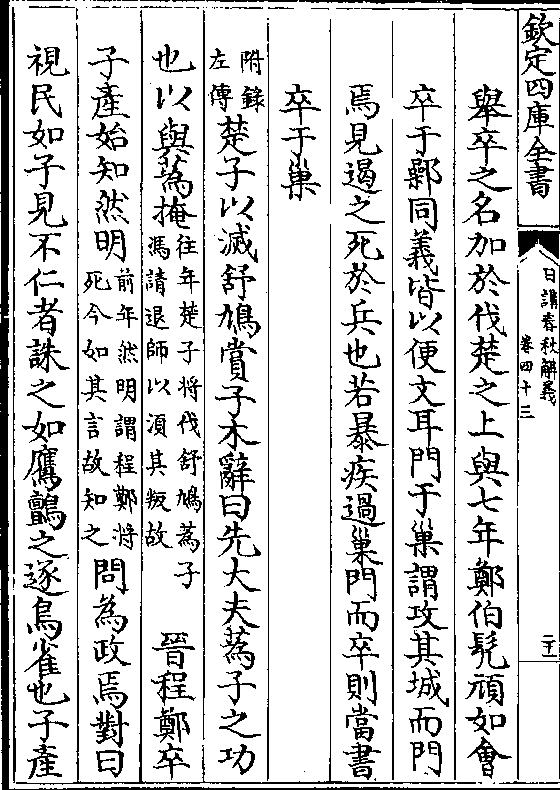 欽定四庫全書
日講春秋解義
卷四十三
二十一
舉卒之名加於伐楚之上與七年鄭伯髠頑如會
卒于鄵同義皆以便文耳門于巢謂攻其城而門
焉見遏之死於兵也若暴疾過巢門而卒則當書
卒于巢
附錄
左傳
楚子以滅舒鳩賞子木辭曰先大夫蒍子之功
也以與蒍掩
往年楚子将伐舒鳩蒍子
馮請退師以須其叛故
晉程鄭卒
子產始知然明
前年然明謂程鄭将
死今如其言故知之
問為政焉對曰
視民如子見不仁者誅之如鷹鸇之逐鳥雀也子產